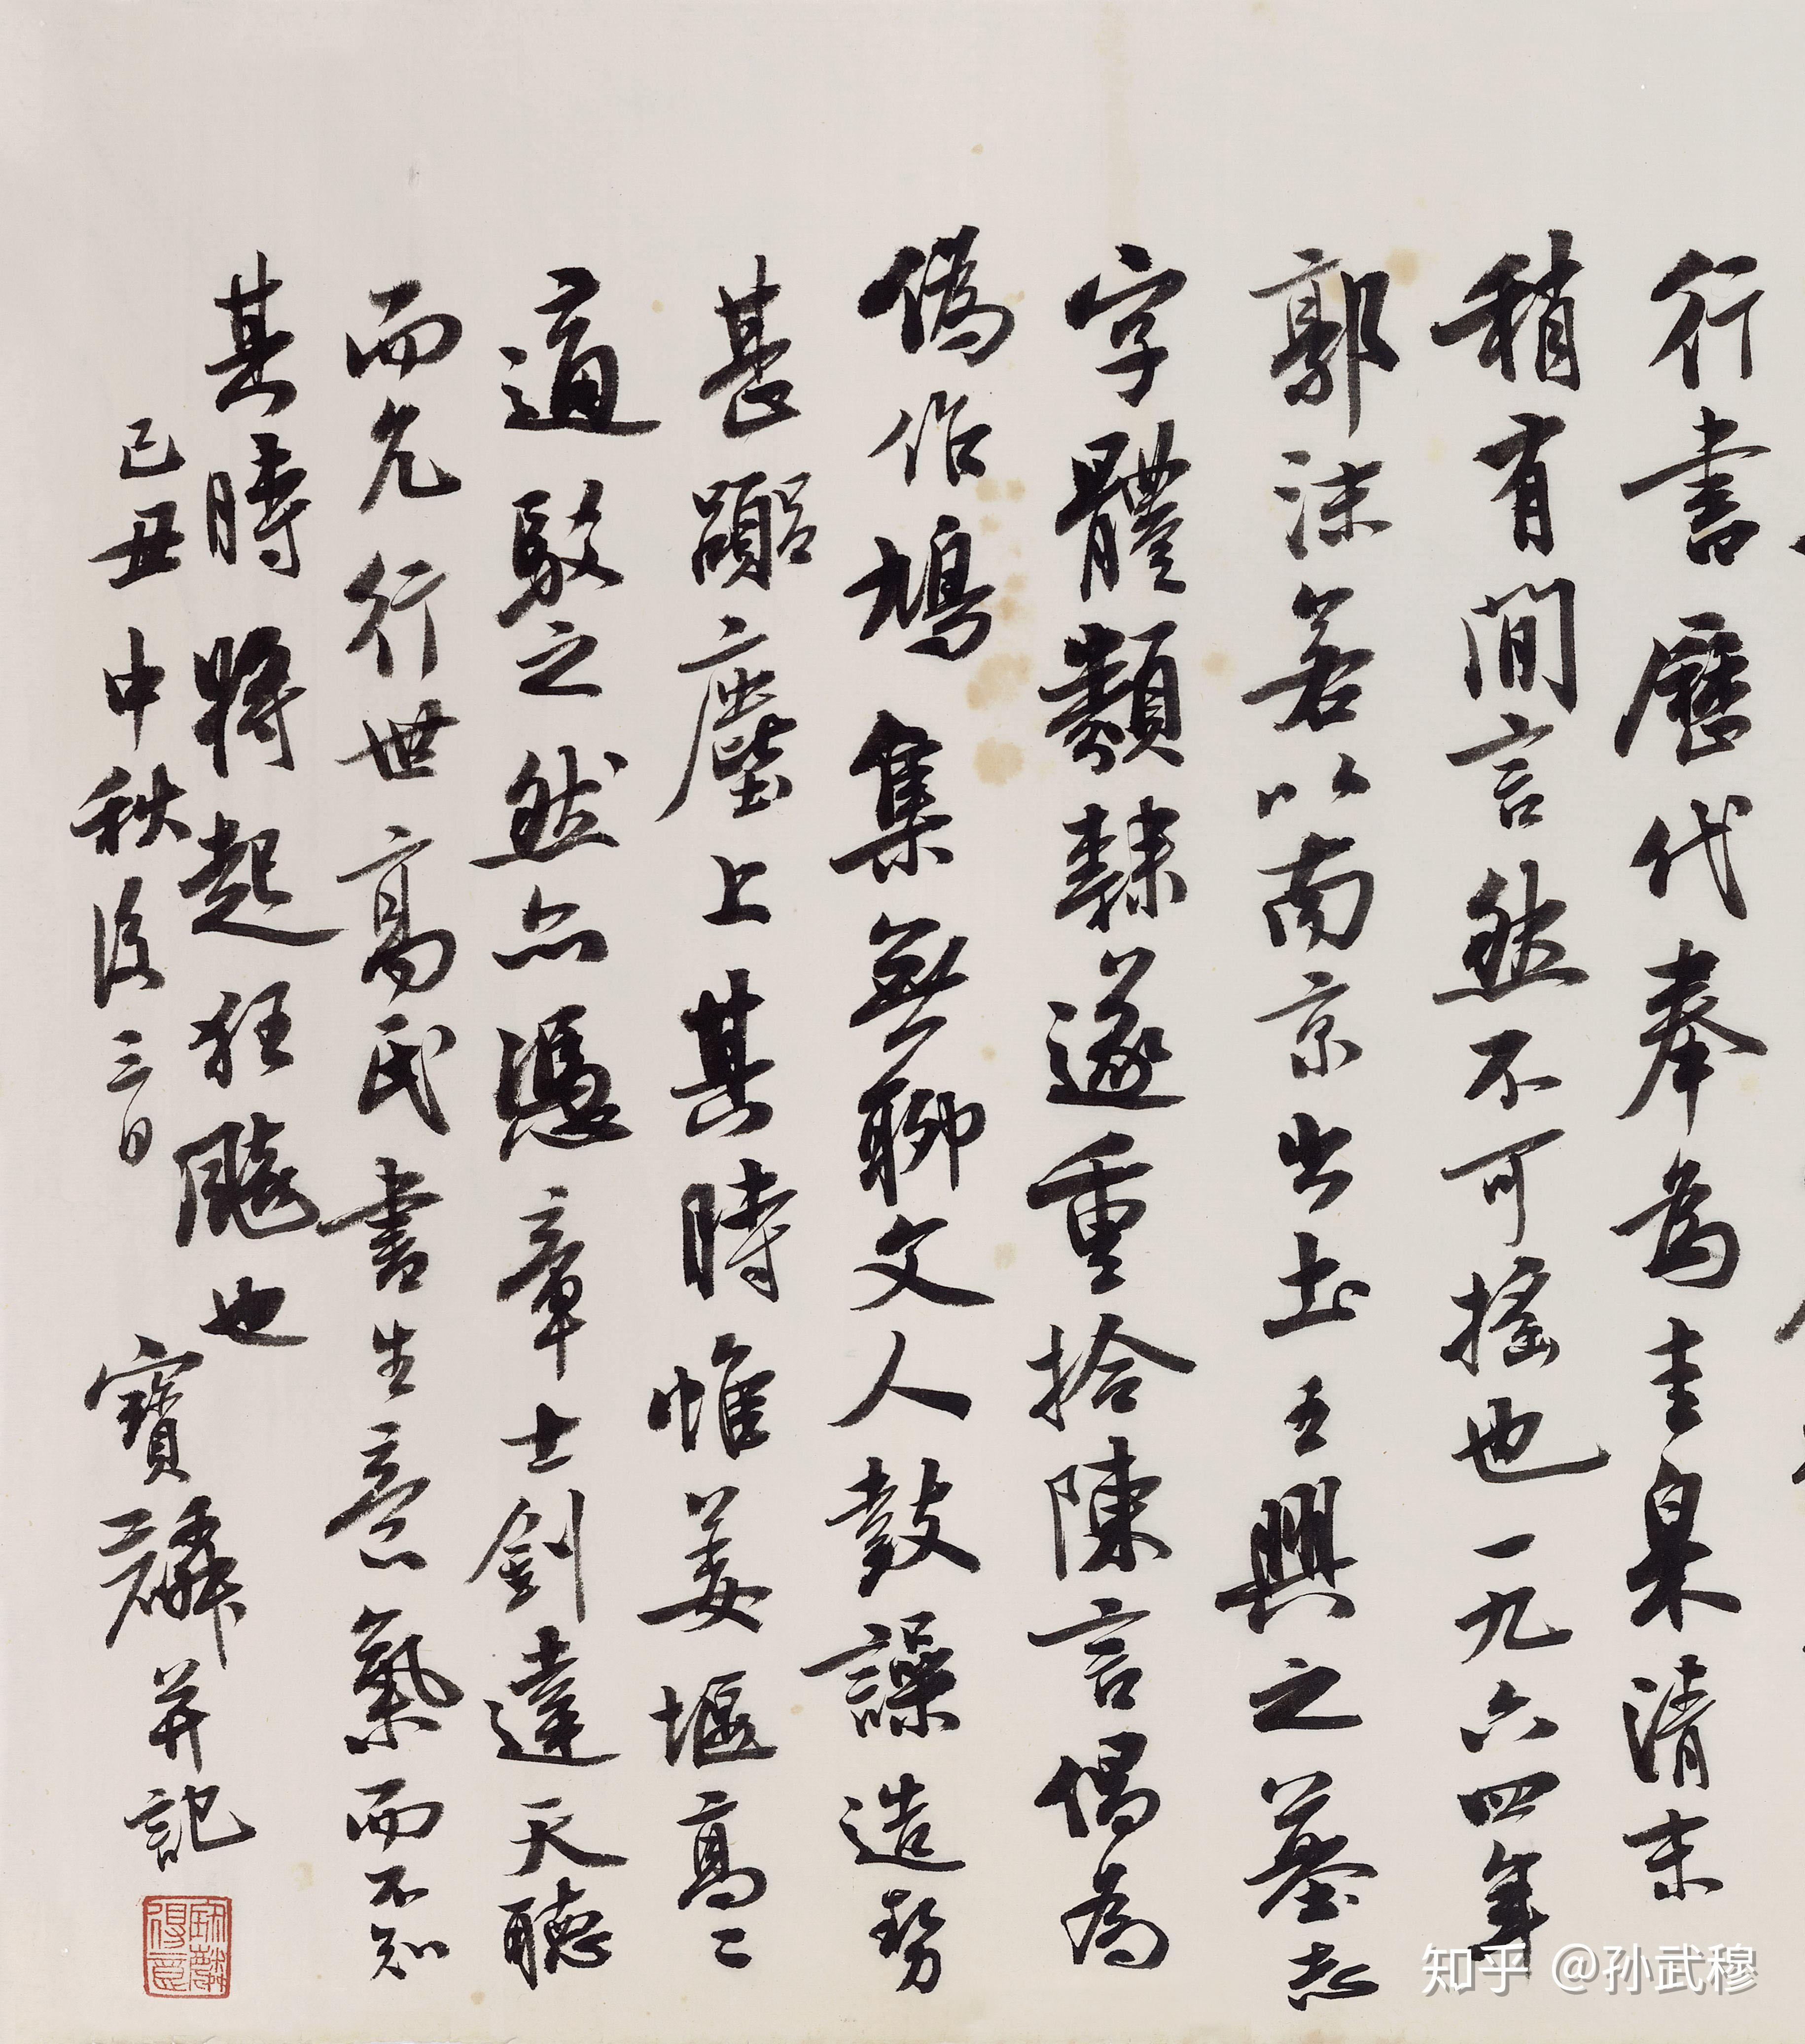 行書歷代奉為圭臬清末
稍有間言然不可搖也一九六四年
郭沫若以南京出土王興之墓志
字體類隸遂重拾陳言倡為
偽作鳩集無聊文人鼓譟造勢
甚囂塵上其時惟姜堰高二
適駁之然亦憑章士釗達天聽
而允行世高氏書生意氣而不知
其時將起狂飈也
己丑中秋後三日
寶麟并記
知乎 @孙武穆